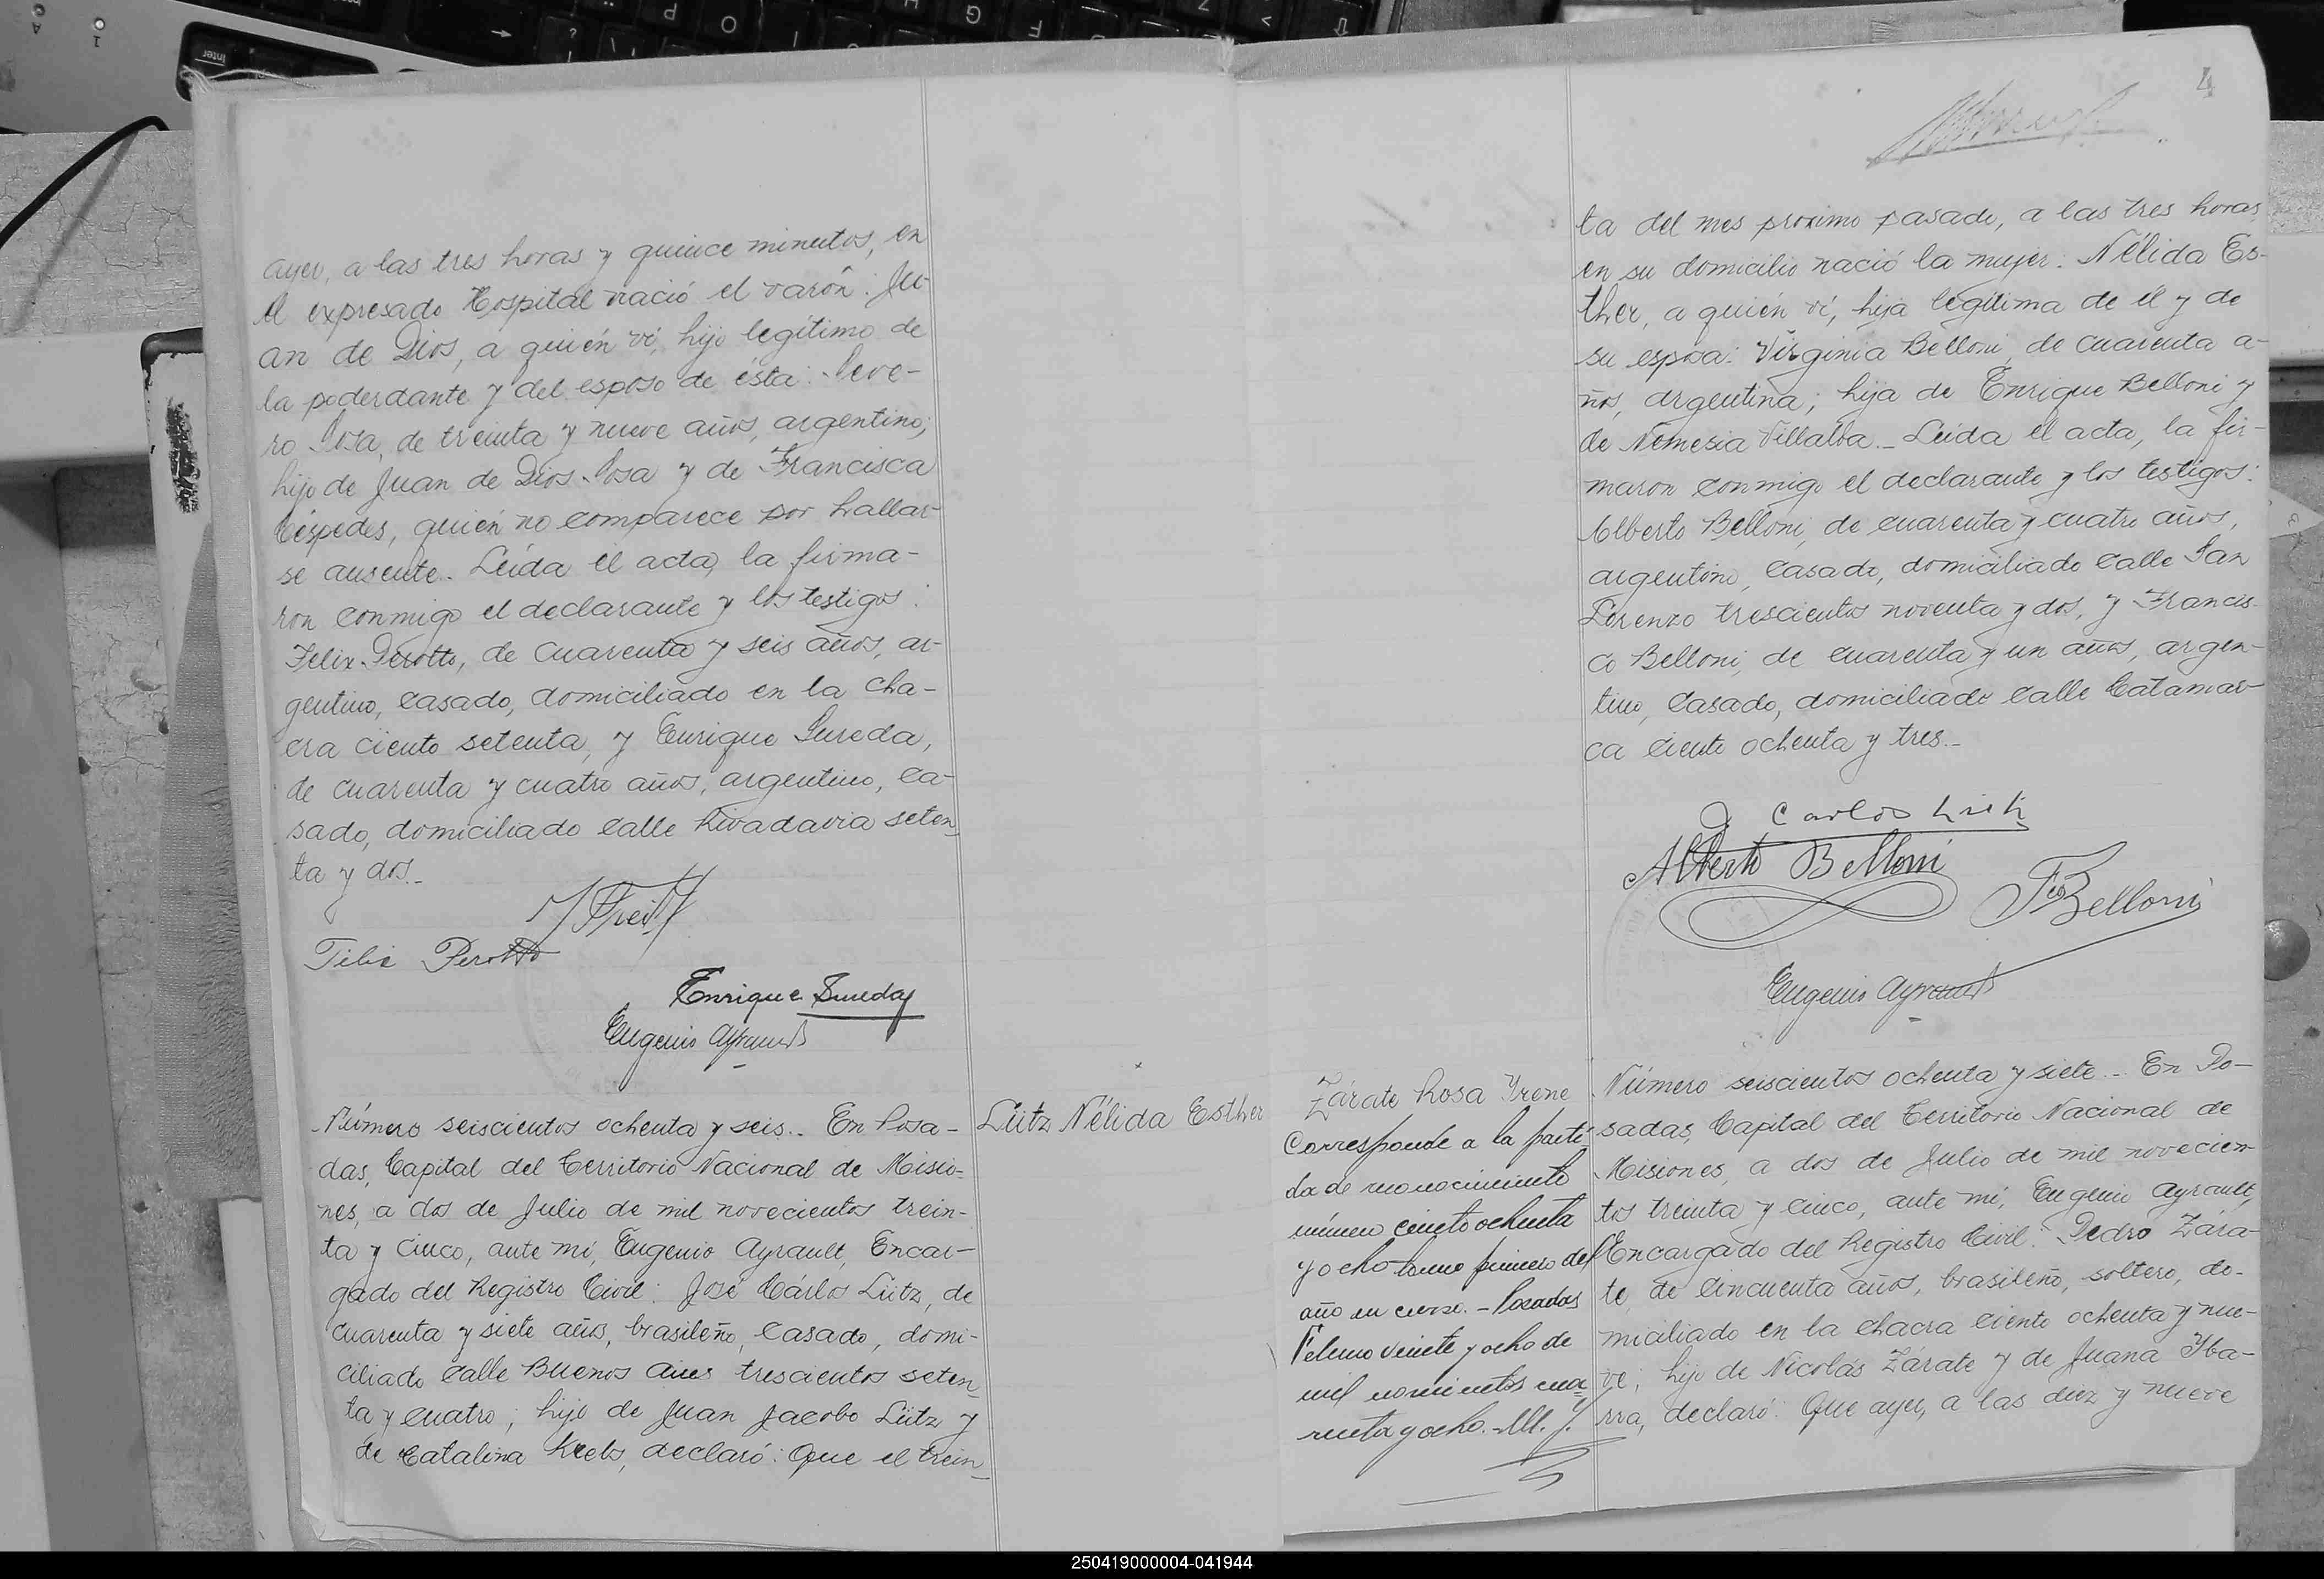 ayer, a las tres horas y quince minutos, en
el expresado Hospital nació el varón: Ju-
an de Dios, a quién ví, hijo legítimo de
la poderdante y del esposo de ésta: Seve-
ro Sosa, de treinta y nueve años, argentino;
hijo de Juan de Dios Sosa y de Francisca
Céspedes, quién no comparece por hallar-
se ausente. Leída el acta, la firma-
ron conmigo el declarante y los testigos:
Felix Perotto, de cuarenta y seis años, ar-
gentino, casado, domiciliado en la cha-
cra ciento setenta, y Enrique Sureda,
de cuarenta y cuatro años, argentino, ca-
sado, domiciliado calle Rivadavia seten_
ta y dos._
Felix Perotto
Enrique Sureda
Eugenio Ayrault
Número seiscientos ochenta y seis._ En Posa-
das, Capital del Territorio Nacional de Misio-
nes, a dos de Julio de mil novecientos trein-
ta y cinco, ante mí, Eugenio Ayrault, Encar-
gado del Registro Civil: José Cárlos Lütz, de
cuarenta y siete años, brasileño, casado, domi-
ciliado calle Buenos Aires trescientos seten_
ta y cuatro; hijo de Juan Jacobo Lütz y
de Catalina Krebs, declaró: Que el trein_
Lütz Nélida Esther
4
ta del mes proximo pasado, a las tres horas
en su domicilio nació la mujer: Nélida Es-
ther, a quién ví, hija legítima de él y de
su esposa: Virginia Belloni, de cuarenta a-
ños, argentina; hija de Enrique Belloni y
de Nemesia Villalba._ Leída el acta, la fir-
maron conmigo el declarante y los testigos:
Alberto Belloni, de cuarenta y cuatro años,
argentino, casado, domiciliado calle San
Lorenzo trescientos noventa y dos, y Francis-
co Belloni, de cuarenta y un años, argen-
tino, casado, domiciliado calle Catamar-
ca ciento ochenta y tres._
J. Carlos Lütz
Alberto Belloni
Fco Belloni
Eugenio Ayrault
Zárate Rosa Yrene
Corresponde a la parti-
da de reconocimiento
número ciento ochenta
y ocho tomo primero del
año en curso. - Posadas
Febrero veinte y ocho de
mil novecientos cua-
renta y ocho. - M. J.
Número seiscientos ochenta y siete._ En Po-
sadas, Capital del Territorio Nacional de
Misiones, a dos de Julio de mil novecien-
tos treinta y cinco, ante mí, Eugenio Ayrault,
Encargado del Registro Civil: Pedro Zára-
te, de cincuenta años, brasileño, soltero, do-
miciliado en la chacra ciento ochenta y nue-
ve; hijo de Nicolás Zárate y de Juana Yba-
rra, declaró: Que ayer, a las diez y nueve
250419000004-041944